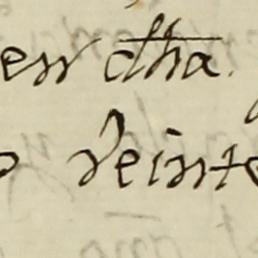 en dha.
Veinte